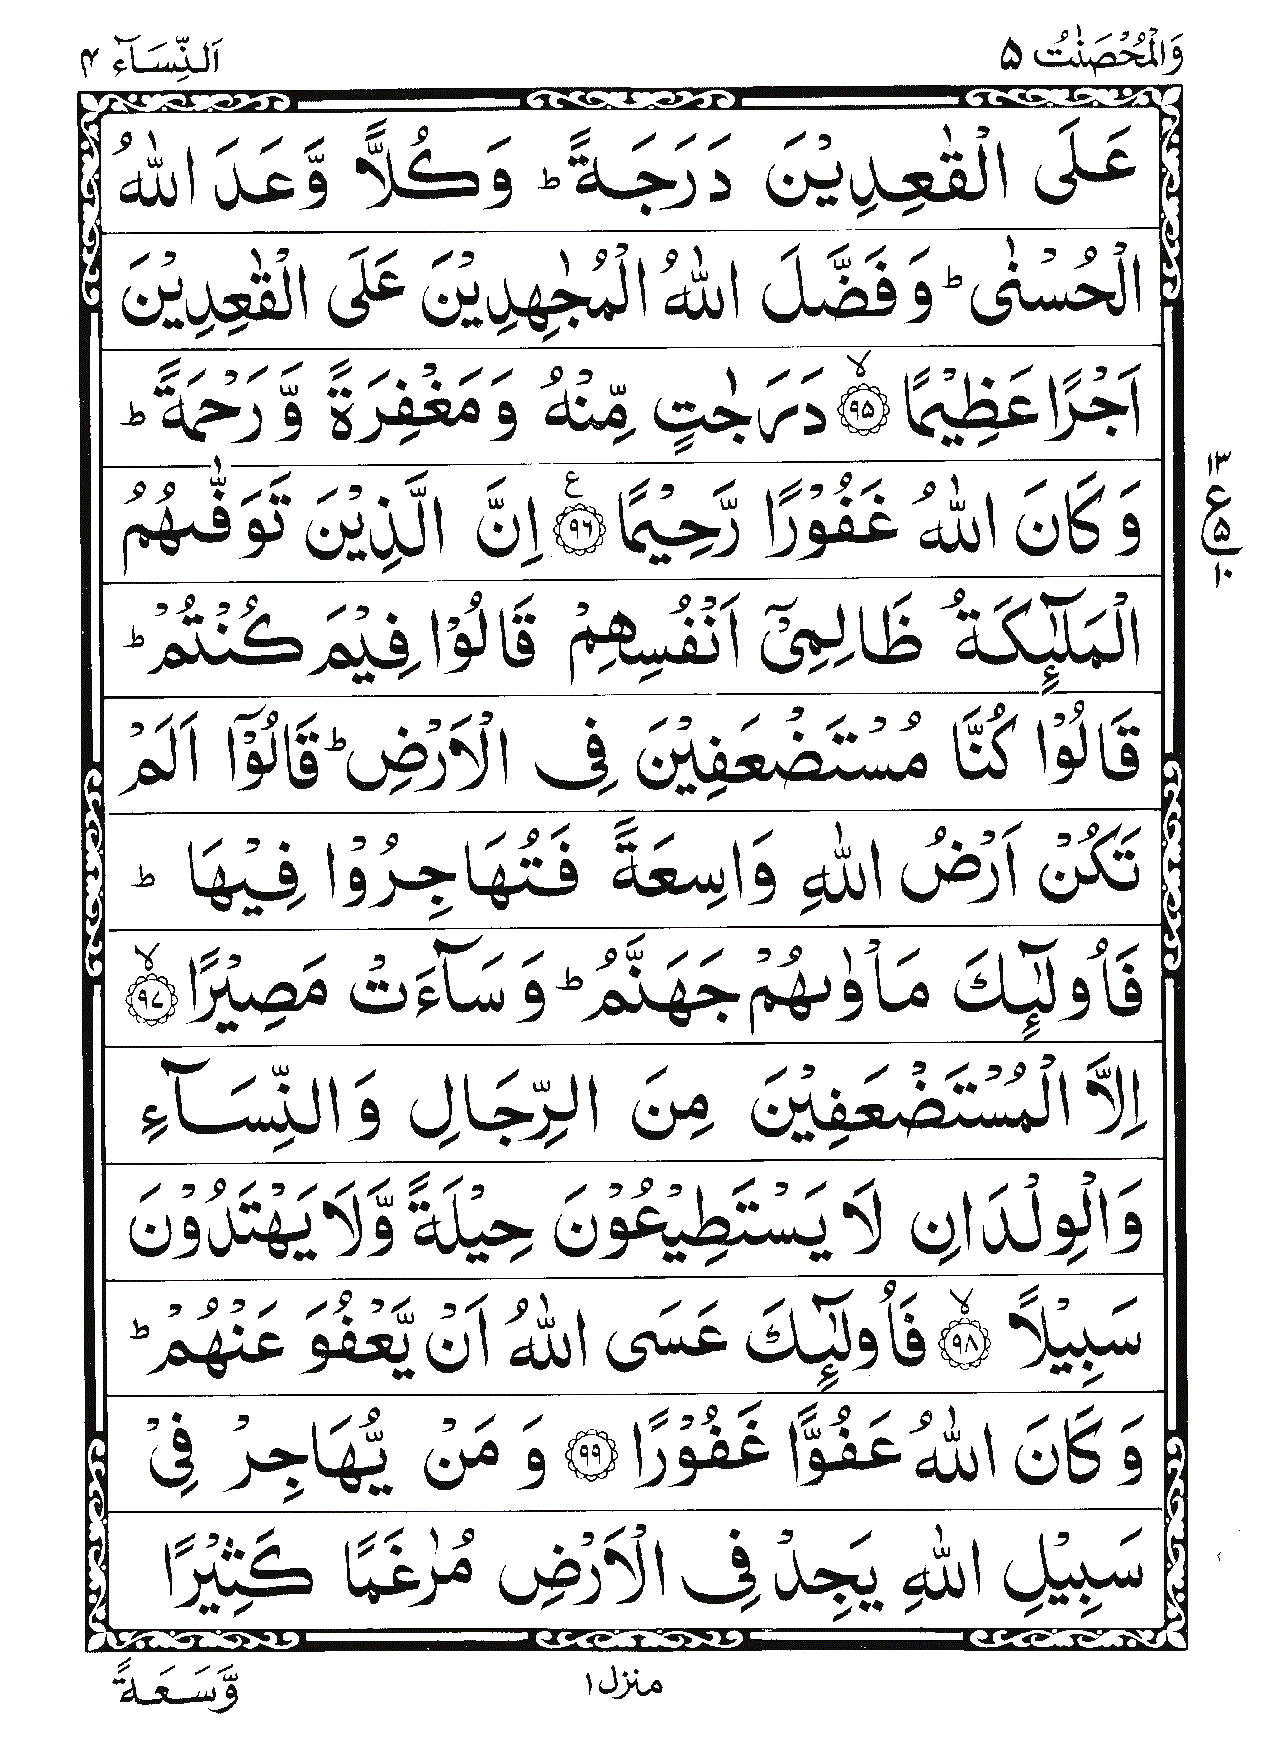 وَالْمُحْصَنٰتُ ۵ اَلنِّسَآء ۴
عَلَى الْقٰعِدِيْنَ دَرَجَةً ؕ وَكُلًّا وَّعَدَ اللّٰهُ
الْحُسْنٰى ؕ وَفَضَّلَ اللّٰهُ الْمُجٰهِدِيْنَ عَلَى الْقٰعِدِيْنَ
اَجْرًا عَظِيْمًا ۙ‏﴿۹۵﴾ دَرَجٰتٍ مِّنْهُ وَمَغْفِرَةً وَّرَحْمَةً ؕ
وَكَانَ اللّٰهُ غَفُوْرًا رَّحِيْمًا ﴿۹۶﴾ ع اِنَّ الَّذِيْنَ تَوَفّٰٮهُمُ
۱۳ ع ۵ ۱۰
الْمَلٰٓئِكَةُ ظَالِمِىْۤ اَنْفُسِهِمْ قَالُوْا فِيْمَ كُنْتُمْ ؕ
قَالُوْا كُنَّا مُسْتَضْعَفِيْنَ فِى الْاَرْضِ ؕ قَالُوْۤا اَلَمْ
تَكُنْ اَرْضُ اللّٰهِ وَاسِعَةً فَتُهَاجِرُوْا فِيْهَا ؕ
فَاُولٰٓئِكَ مَاْوٰٮهُمْ جَهَنَّمُ ؕ وَسَآءَتْ مَصِيْرًا ۙ‏﴿۹۷﴾
اِلَّا الْمُسْتَضْعَفِيْنَ مِنَ الرِّجَالِ وَالنِّسَآءِ
وَالْوِلْدَانِ لَا يَسْتَطِيْعُوْنَ حِيْلَةً وَّلَا يَهْتَدُوْنَ
سَبِيْلًا ۙ‏﴿۹۸﴾ فَاُولٰٓئِكَ عَسَى اللّٰهُ اَنْ يَّعْفُوَ عَنْهُمْ ؕ
وَكَانَ اللّٰهُ عَفُوًّا غَفُوْرًا ﴿۹۹﴾ وَمَنْ يُّهَاجِرْ فِىْ
سَبِيْلِ اللّٰهِ يَجِدْ فِى الْاَرْضِ مُرٰغَمًا كَثِيْرًا
منزل ۱ وَّسَعَةً